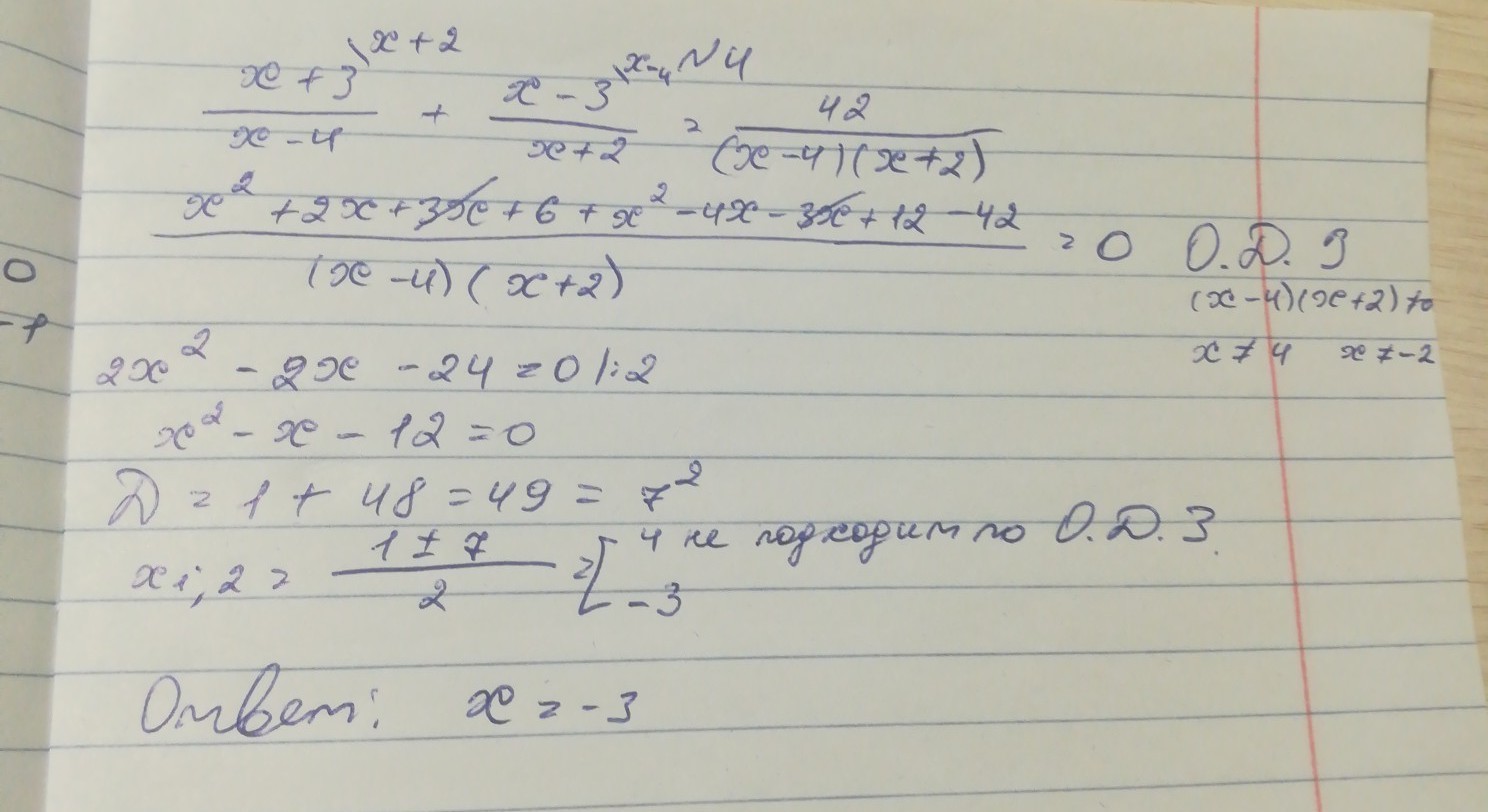 №4
\frac{x+3^{\backslash x+2}}{x-4} + \frac{x-3^{\backslash x-4}}{x+2} = \frac{42}{(x-4)(x+2)}
\frac{x^2+2x+3x+6+x^2-4x-3x+12-42}{(x-4)(x+2)} = 0
О.Д.З
(x-4)(x+2)≠0
x≠4 x≠-2
0
-1
2x² - 2x - 24 = 0 |:2
x² - x - 12 = 0
D = 1 + 48 = 49 = 7²
x₁,₂ = \frac{1±7}{2} = [ 4 не подходит по О.Д.З.
-3
Ответ: x = -3